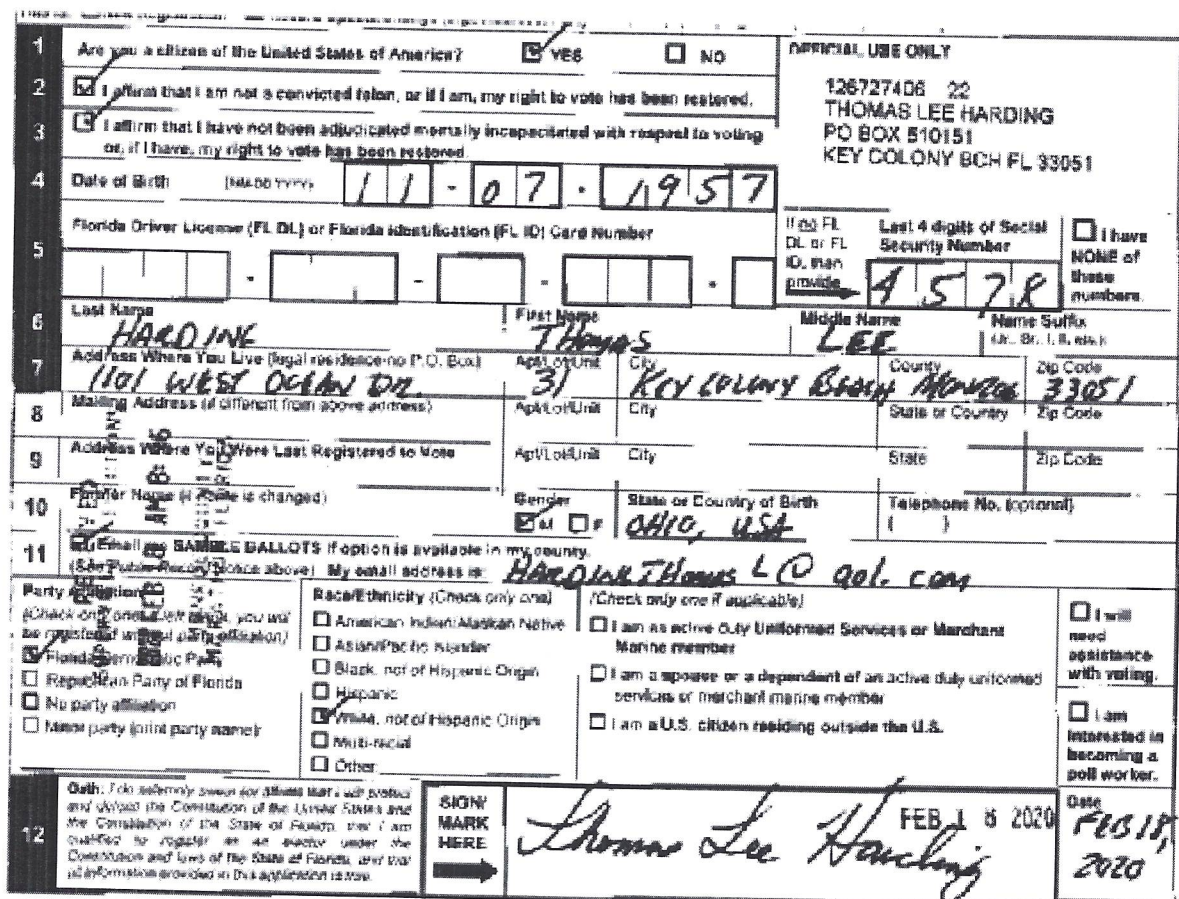 1 Are you a citizen of the United States of America? YES NO
OFFICIAL USE ONLY
126727406 22
THOMAS LEE HARDING
PO BOX 510151
KEY COLONY BCH FL 33051
2 I affirm that I am not a convicted felon, or if I am, my right to vote has been restored.
3 I affirm that I have not been adjudicated mentally incapacitated with respect to voting
or, if I have, my right to vote has been restored.
4 Date of Birth (MM-DD-YYYY) 11-07-1957
5 Florida Driver License (FL DL) or Florida Identification (FL ID) Card Number
If no FL DL or FL ID, then provide
Last 4 digits of Social Security Number
4578
I have NONE of these numbers.
6 Last Name First Name Middle Name Name Suffix
(Jr., Sr., I, II, etc.)
HARDING THOMAS LEE
7 Address Where You Live (legal residence-no P.O. Box) Apt/Lot/Unit City County Zip Code
1101 WEST OCEAN DR. 31 KEY COLONY BEACH MONROE 33051
8 Mailing Address (if different from above address) Apt/Lot/Unit City State or Country Zip Code
9 Address Where You Were Last Registered to Vote Apt/Lot/Unit City State Zip Code
10 Former Name (if name is changed) Gender M F State or Country of Birth Telephone No. (optional)
OHIO, USA ( )
11 Email me SAMPLE BALLOTS if option is available in my county.
(See Public Record Notice above) My email address is: HARDINGTHOMASL@aol.com
Party Affiliation
(Check only one. If left blank, you will
be registered without party affiliation)
Florida Democratic Party
Republican Party of Florida
No party affiliation
Minor party (print party name):
Race/Ethnicity (Check only one)
American Indian/Alaskan Native
Asian/Pacific Islander
Black, not of Hispanic Origin
Hispanic
White, not of Hispanic Origin
Multi-racial
Other
(Check only one if applicable)
I am an active duty Uniformed Services or Merchant
Marine member
I am a spouse or a dependent of an active duty uniformed
services or merchant marine member
I am a U.S. citizen residing outside the U.S.
I will
need
assistance
with voting.
I am
interested in
becoming a
poll worker.
12 Oath: I do solemnly swear (or affirm) that I will protect
and defend the Constitution of the United States and
the Constitution of the State of Florida, that I am
qualified to register as an elector under the
Constitution and laws of the State of Florida, and that
all information provided in this application is true.
SIGN/
MARK
HERE
Thomas Lee Harding
FEB 18 2020
Date
FEB 18,
2020